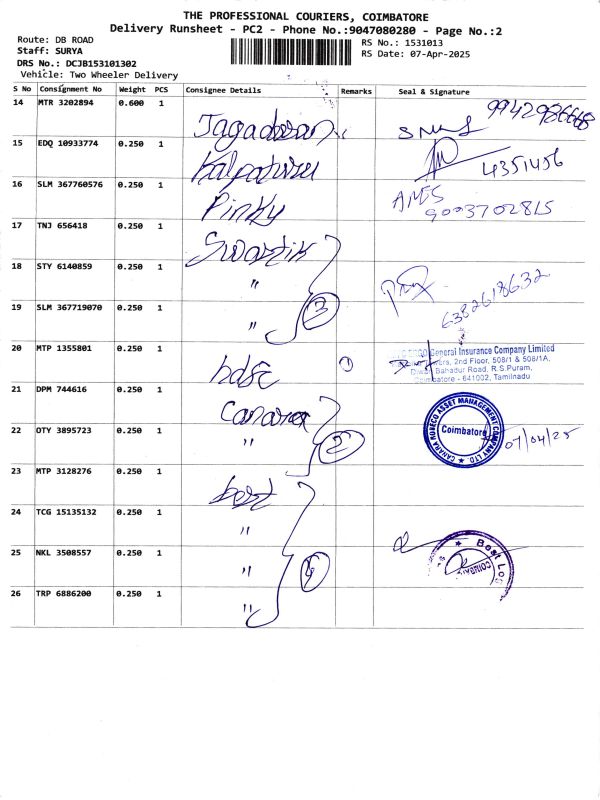 THE PROFESSIONAL COURIERS, COIMBATORE
Delivery Runsheet - PC2 - Phone No.:9047080280 - Page No.:2
Route: DB ROAD
Staff: SURYA
DRS No.: DCJB153101302
Vehicle: Two Wheeler Delivery
RS No.: 1531013
RS Date: 07-Apr-2025
S No Consignment No Weight PCS Consignee Details Remarks Seal & Signature
14 MTR 3202894 0.600 1 Jagadesan 9942986668
15 EDQ 10933774 0.250 1 4351456
16 SLM 367760576 0.250 1 Pinky 9003702815
17 TNJ 656418 0.250 1 Swastik
18 STY 6140859 0.250 1 " 6382618632
19 SLM 367719070 0.250 1 " 3
20 MTP 1355801 0.250 1 hdfc 1
General Insurance Company Limited
2nd Floor, 508/1 & 508/1A,
Bahadur Road, R.S.Puram,
Coimbatore - 641002, Tamilnadu
21 DPM 744616 0.250 1 Canara
CANARA ROBECO ASSET MANAGEMENT COMPANY LTD.
Coimbatore
07/04/25
22 OTY 3895723 0.250 1 " 2
23 MTP 3128276 0.250 1 best
24 TCG 15135132 0.250 1 "
25 NKL 3508557 0.250 1 " 4
Best Log
26 TRP 6886200 0.250 1 "